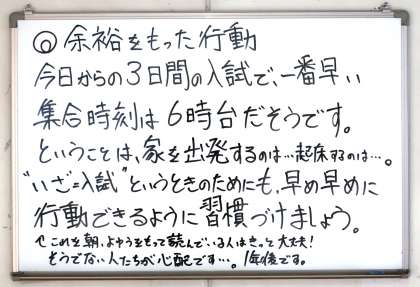 ◎ 余裕をもった行動
今日からの3日間の入試で、一番早い
集合時刻は6時台だそうです。
ということは、家を出発するのは…起床するのは…。
"いざ=入試"というときのためにも、早め早めに
行動できるように習慣づけましょう。
↑これを朝、よゆうをもって読んでいる人はきっと大丈夫!
そうでない人たちが心配です…。1年後です。